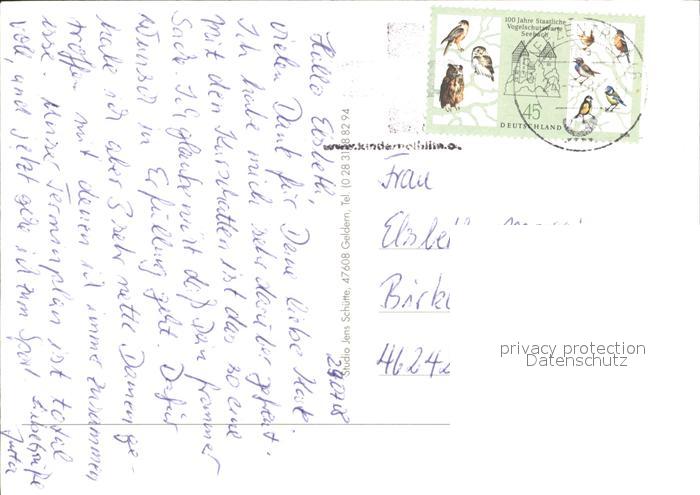 Hallo Elsbeth,
vielen Dank für Deine liebe Karte.
Ich habe mich sehr darüber gefreut.
Mit den Kurschatten ist das so eine
Sache. Ich glaube nicht daß Dein frommer
Wunsch in Erfüllung geht. Dafür
habe ich aber 3 sehr nette Damen ge-
troffen mit denen ich immer zusammen
esse. Meine Terminplan ist total
voll, und jetzt gehe ich zum Sport.
Liebe Grüße
Jutta
Studio Jens Schütte, 47608 Geldern, Tel. (0 28 31) 8 82 94
100 Jahre Staatliche
Vogelschutzwarte
Seebach
45
DEUTSCHLAND
www.kindernothilfe.de
Frau
Elsbeth
Birk
46242
privacy protection
Datenschutz